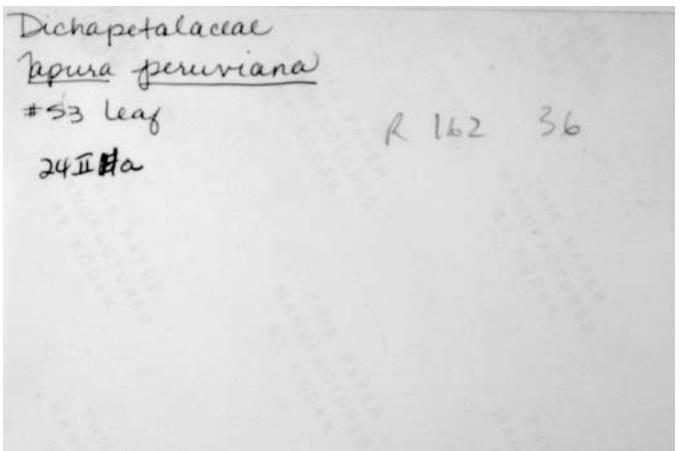 Dichapetalaceae
Tapura peruviana
#53 Leaf
R 162 36
24 II a
THIS PAPER
MANUFACTURED
BY KODAK